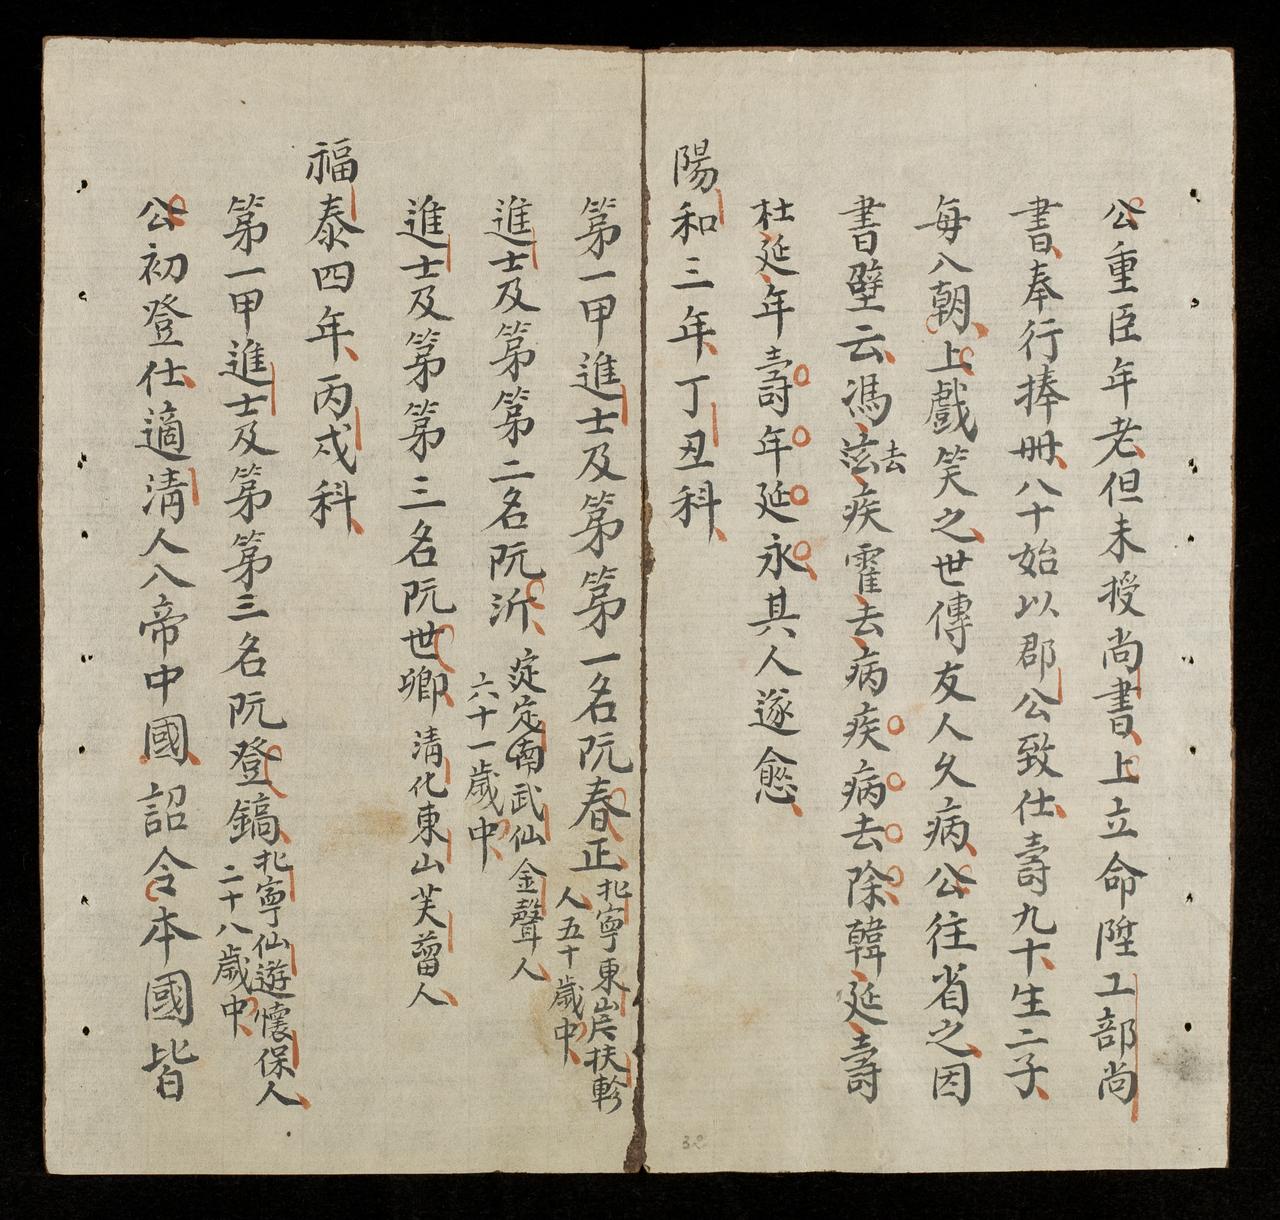 公重臣年老但未授尚書上立命陞工部尚
書奉行捧冊八十始以郡公致仕壽九十生二子
每八朝上戲笑之世傳友人久病公往省之因
書壁云馮泫去疾霍去病疾病去除韓延壽
杜延年壽年延永其人遂愈
陽和三年丁丑科
第一甲進士及第第一名阮春正
北寧東岸扶軫
人五十歲中
進士及第第二名阮沂
莈定南武仙金聲人
六十一歲中
進士及第第三名阮世卿清化東山芙蒥人
福泰四年丙戌科
第一甲進士及第第三名阮登鎬
北寧仙遊懷保人
二十八歲中
公初登仕適清人八帝中國詔令本國皆